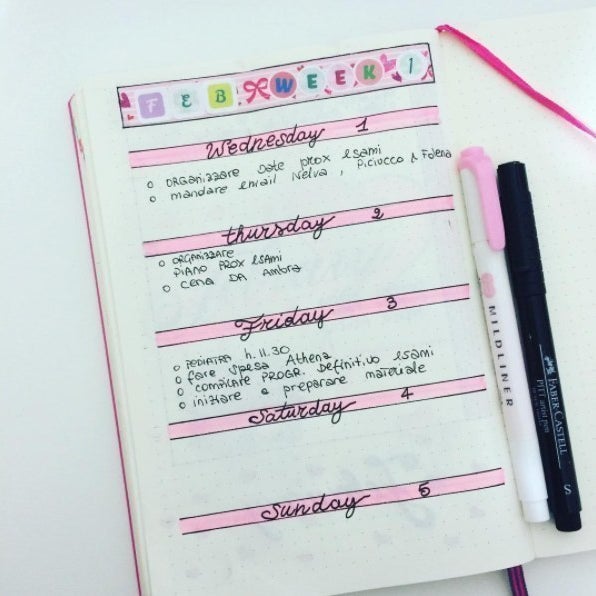 FEB WEEK 1
Wednesday 1
o ORGANIZZARE DATE PROX ESAMI
o mandare email Nelva, Piciucco & Folena
thursday 2
o ORGANIZZARE
PIANO PROX ESAMI
o CENA DA Ambra
Friday 3
o PEDIATRA h. 11.30
o fare spesa Athena
o COMPILARE PROGR. Definitivo esami
o iniziare a preparare materiale
Saturday 4
Sunday 5
MILDLINER
FABER-CASTELL
PITT artist pen
S